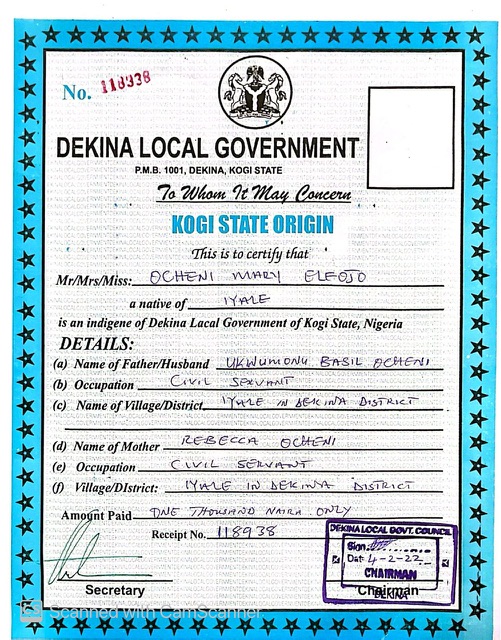 No. 118938
DEKINA LOCAL GOVERNMENT
P.M.B. 1001, DEKINA, KOGI STATE
To Whom It May Concern
KOGI STATE ORIGIN
This is to certify that
Mr/Mrs/Miss: OCHENI MARY ELEOJO
a native of IYALE
is an indigene of Dekina Lacal Government of Kogi State, Nigeria
DETAILS:
(a) Name of Father/Husband UKWUMONU BASIL OCHENI
(b) Occupation CIVIL SERVANT
(c) Name of Village/District IYALE IN DEKINA DISTRICT
(d) Name of Mother REBECCA OCHENI
(e) Occupation CIVIL SERVANT
(f) Village/DIstrict: IYALE IN DEKINA DISTRICT
Amount Paid ONE THOUSAND NAIRA ONLY
Receipt No. 118938
DEKINA LOCAL GOVT. COUNCIL
Sign:
Dat: 4-2-22
CHAIRMAN
DEKINA
Secretary
Chairman
Scanned with CamScanner